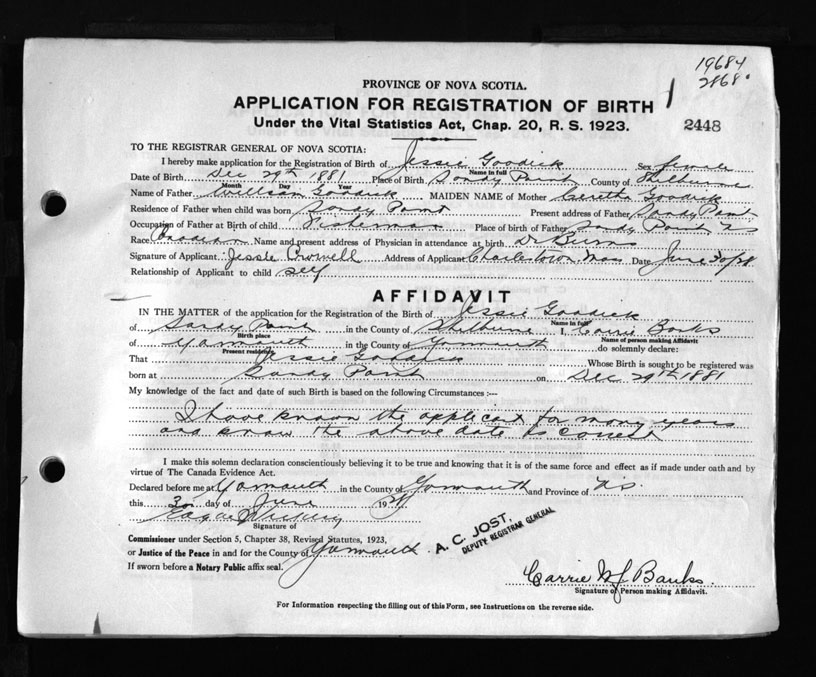 19684
2868
PROVINCE OF NOVA SCOTIA.
APPLICATION FOR REGISTRATION OF BIRTH
Under the Vital Statistics Act, Chap. 20, R. S. 1923.
2448
TO THE REGISTRAR GENERAL OF NOVA SCOTIA:
I hereby make application for the Registration of Birth of Jessie Goodick Sex female
Name in full
Date of Birth Dec 29th 1881 Place of Birth Sandy Point County of Shelburne
Month Day Year
Name of Father William Goodick MAIDEN NAME of Mother Goodick
Residence of Father when child was born Sandy Point Present address of Father Sandy Point
Occupation of Father at Birth of child Fisherman Place of birth of Father Sandy Point NS
Race Canadian Name and present address of Physician in attendance at birth Dr Burns
Signature of Applicant Jessie Crowell Address of Applicant Charlestown, Mass Date June 30/28
Relationship of Applicant to child self
AFFIDAVIT
IN THE MATTER of the application for the Registration of the Birth of Jessie Goodick
Name in full
of Sandy Point in the County of Shelburne I, Carrie Banks
Birth place Name of person making Affidavit
of Yarmouth in the County of Yarmouth do solemnly declare:
Present residence
That Jessie Goodick Whose Birth is sought to be registered was
born at Sandy Point on Dec 29th 1881
My knowledge of the fact and date of such Birth is based on the following Circumstances :—
I have known the applicant for many years
and know the above date is correct
I make this solemn declaration conscientiously believing it to be true and knowing that it is of the same force and effect as if made under oath and by
virtue of The Canada Evidence Act.
Declared before me at Yarmouth in the County of Yarmouth and Province of N.S.
this 30 day of June 19
Signature of
Commissioner under Section 5, Chapter 38, Revised Statutes, 1923,
or Justice of the Peace in and for the County of Yarmouth
If sworn before a Notary Public affix seal.
A. C. JOST,
DEPUTY REGISTRAR GENERAL
Carrie M Banks
Signature of Person making Affidavit.
For Information respecting the filling out of this Form, see Instructions on the reverse side.